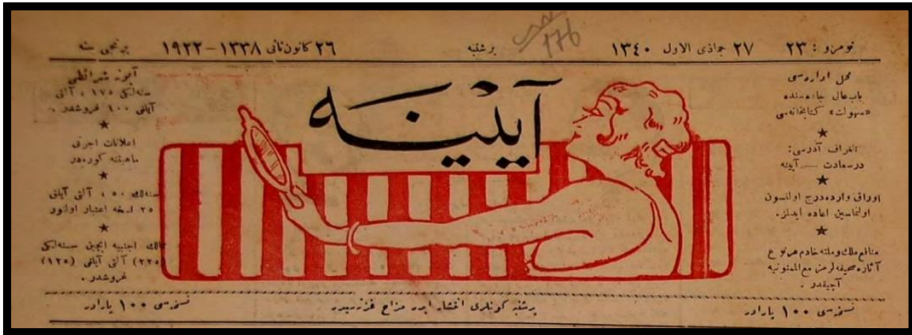 نومرو : ٢٣
٢٧ جماذی الاول ١٣٤٠
پرشنبه
٢٦ كانون ثانی ١٣٣٨ – ١٩٢٢
برنجی سنه
176
آیینه
محل اداره‌سی
باب عالی جاده‌سنده
«سهولت» كتابخانه‌سی
★
تلغراف آدرسی:
درسعادت — آیینه
★
اوراق وارده درج اولنسون
اولنماسین اعاده ایدلمز.
★
منافع ملك و ملته خادم هر نوع
آثاره صحیفه‌لرمز مع الممنونیه
آچیقدر .
آبونه شرائطی
سنه‌لكی ١٧٥ ، آلتی
آیلغی ١٠٠ غروشدر .
★
اعلانات اجرتی
ماهیتنه كوره‌در
★
سنه‌لك ٥٠ ، آلتی آیلق
٢٥ نسخه اعتبار اولنور
★
ممالك اجنبیه ایچین سنه‌لكی
(٢٢٥) آلتی آیلغی (١٢٥)
غروشدر .
نسخه‌سی ١٠٠ پاره‌در
پرشنبه كونلری انتشار ایدر مزاح غزته‌سیدر
نسخه‌سی ١٠٠ پاره‌در